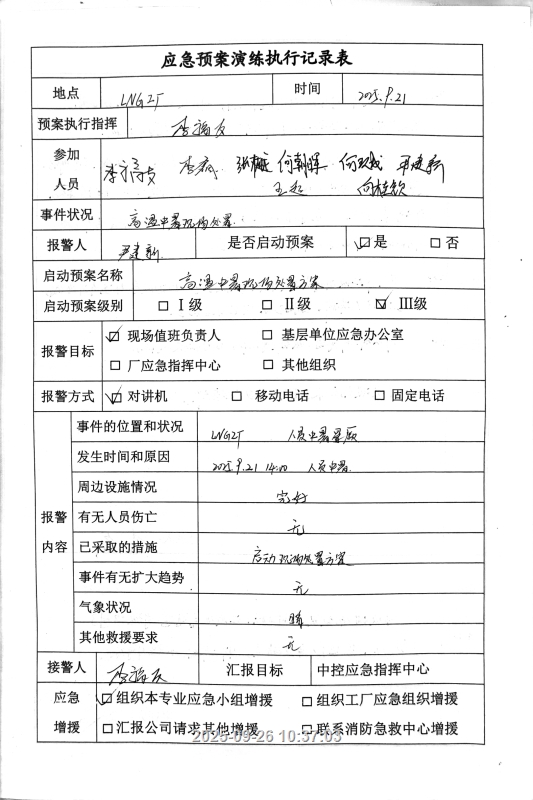 应急预案演练执行记录表
地点 LNG2T 时间 2025.9.21
预案执行指挥 李福友
参加人员 李福友 李斌 何朝晖 尹建新
王起
事件状况 高温中暑现场处置
报警人 尹建新 是否启动预案 ☑是 □否
启动预案名称 高温中暑现场处置方案
启动预案级别 □Ⅰ级 □Ⅱ级 ☑Ⅲ级
报警目标 ☑现场值班负责人 □基层单位应急办公室
□厂应急指挥中心 □其他组织
报警方式 ☑对讲机 □移动电话 □固定电话
报警内容
事件的位置和状况 LNG2T 人员中暑晕厥
发生时间和原因 2025.9.21 14:00 人员中暑
周边设施情况 完好
有无人员伤亡 无
已采取的措施 启动现场处置方案
事件有无扩大趋势 无
气象状况 晴
其他救援要求 无
接警人 李福友 汇报目标 中控应急指挥中心
应急增援 ☑组织本专业应急小组增援 □组织工厂应急组织增援
□汇报公司请求其他增援 □联系消防急救中心增援
2025-09-26 10:37:03